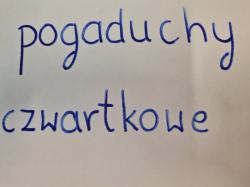 pogaduchy
czwartkowe